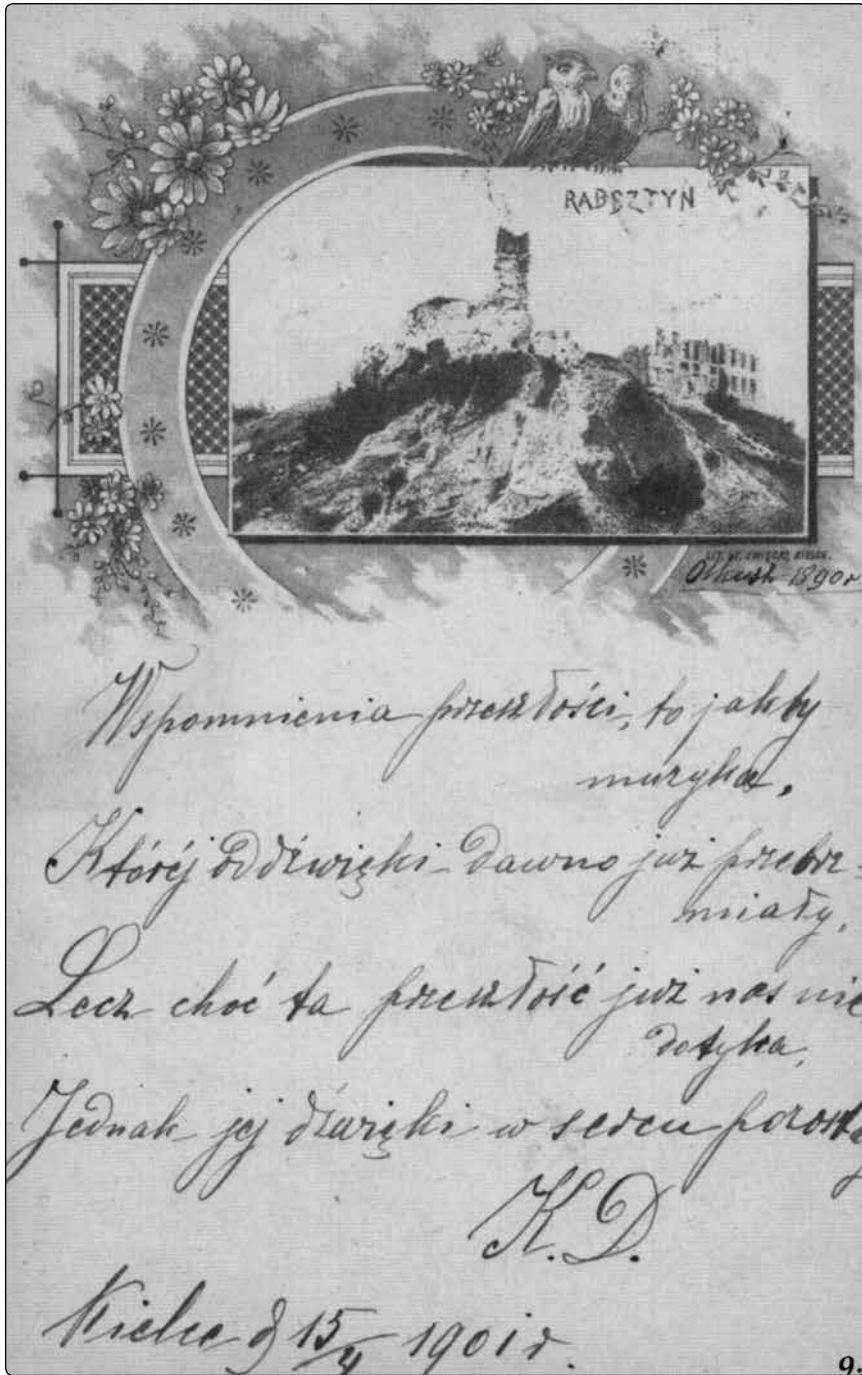 RABSZTYN
LIT. ST. ŚWIĘCKI, KIELCE.
Olkusz 1890 r
Wspomnienia przeszłości, to jakby
muzyka,
Któréj oddźwięki dawno już przebrz-
miały,
Lecz choć ta przeszłość już nas nie
dotyka,
Jednak jej dźwięki w sercu pozostały
K. D.
Kielce d 15/4 1901 r.
9.